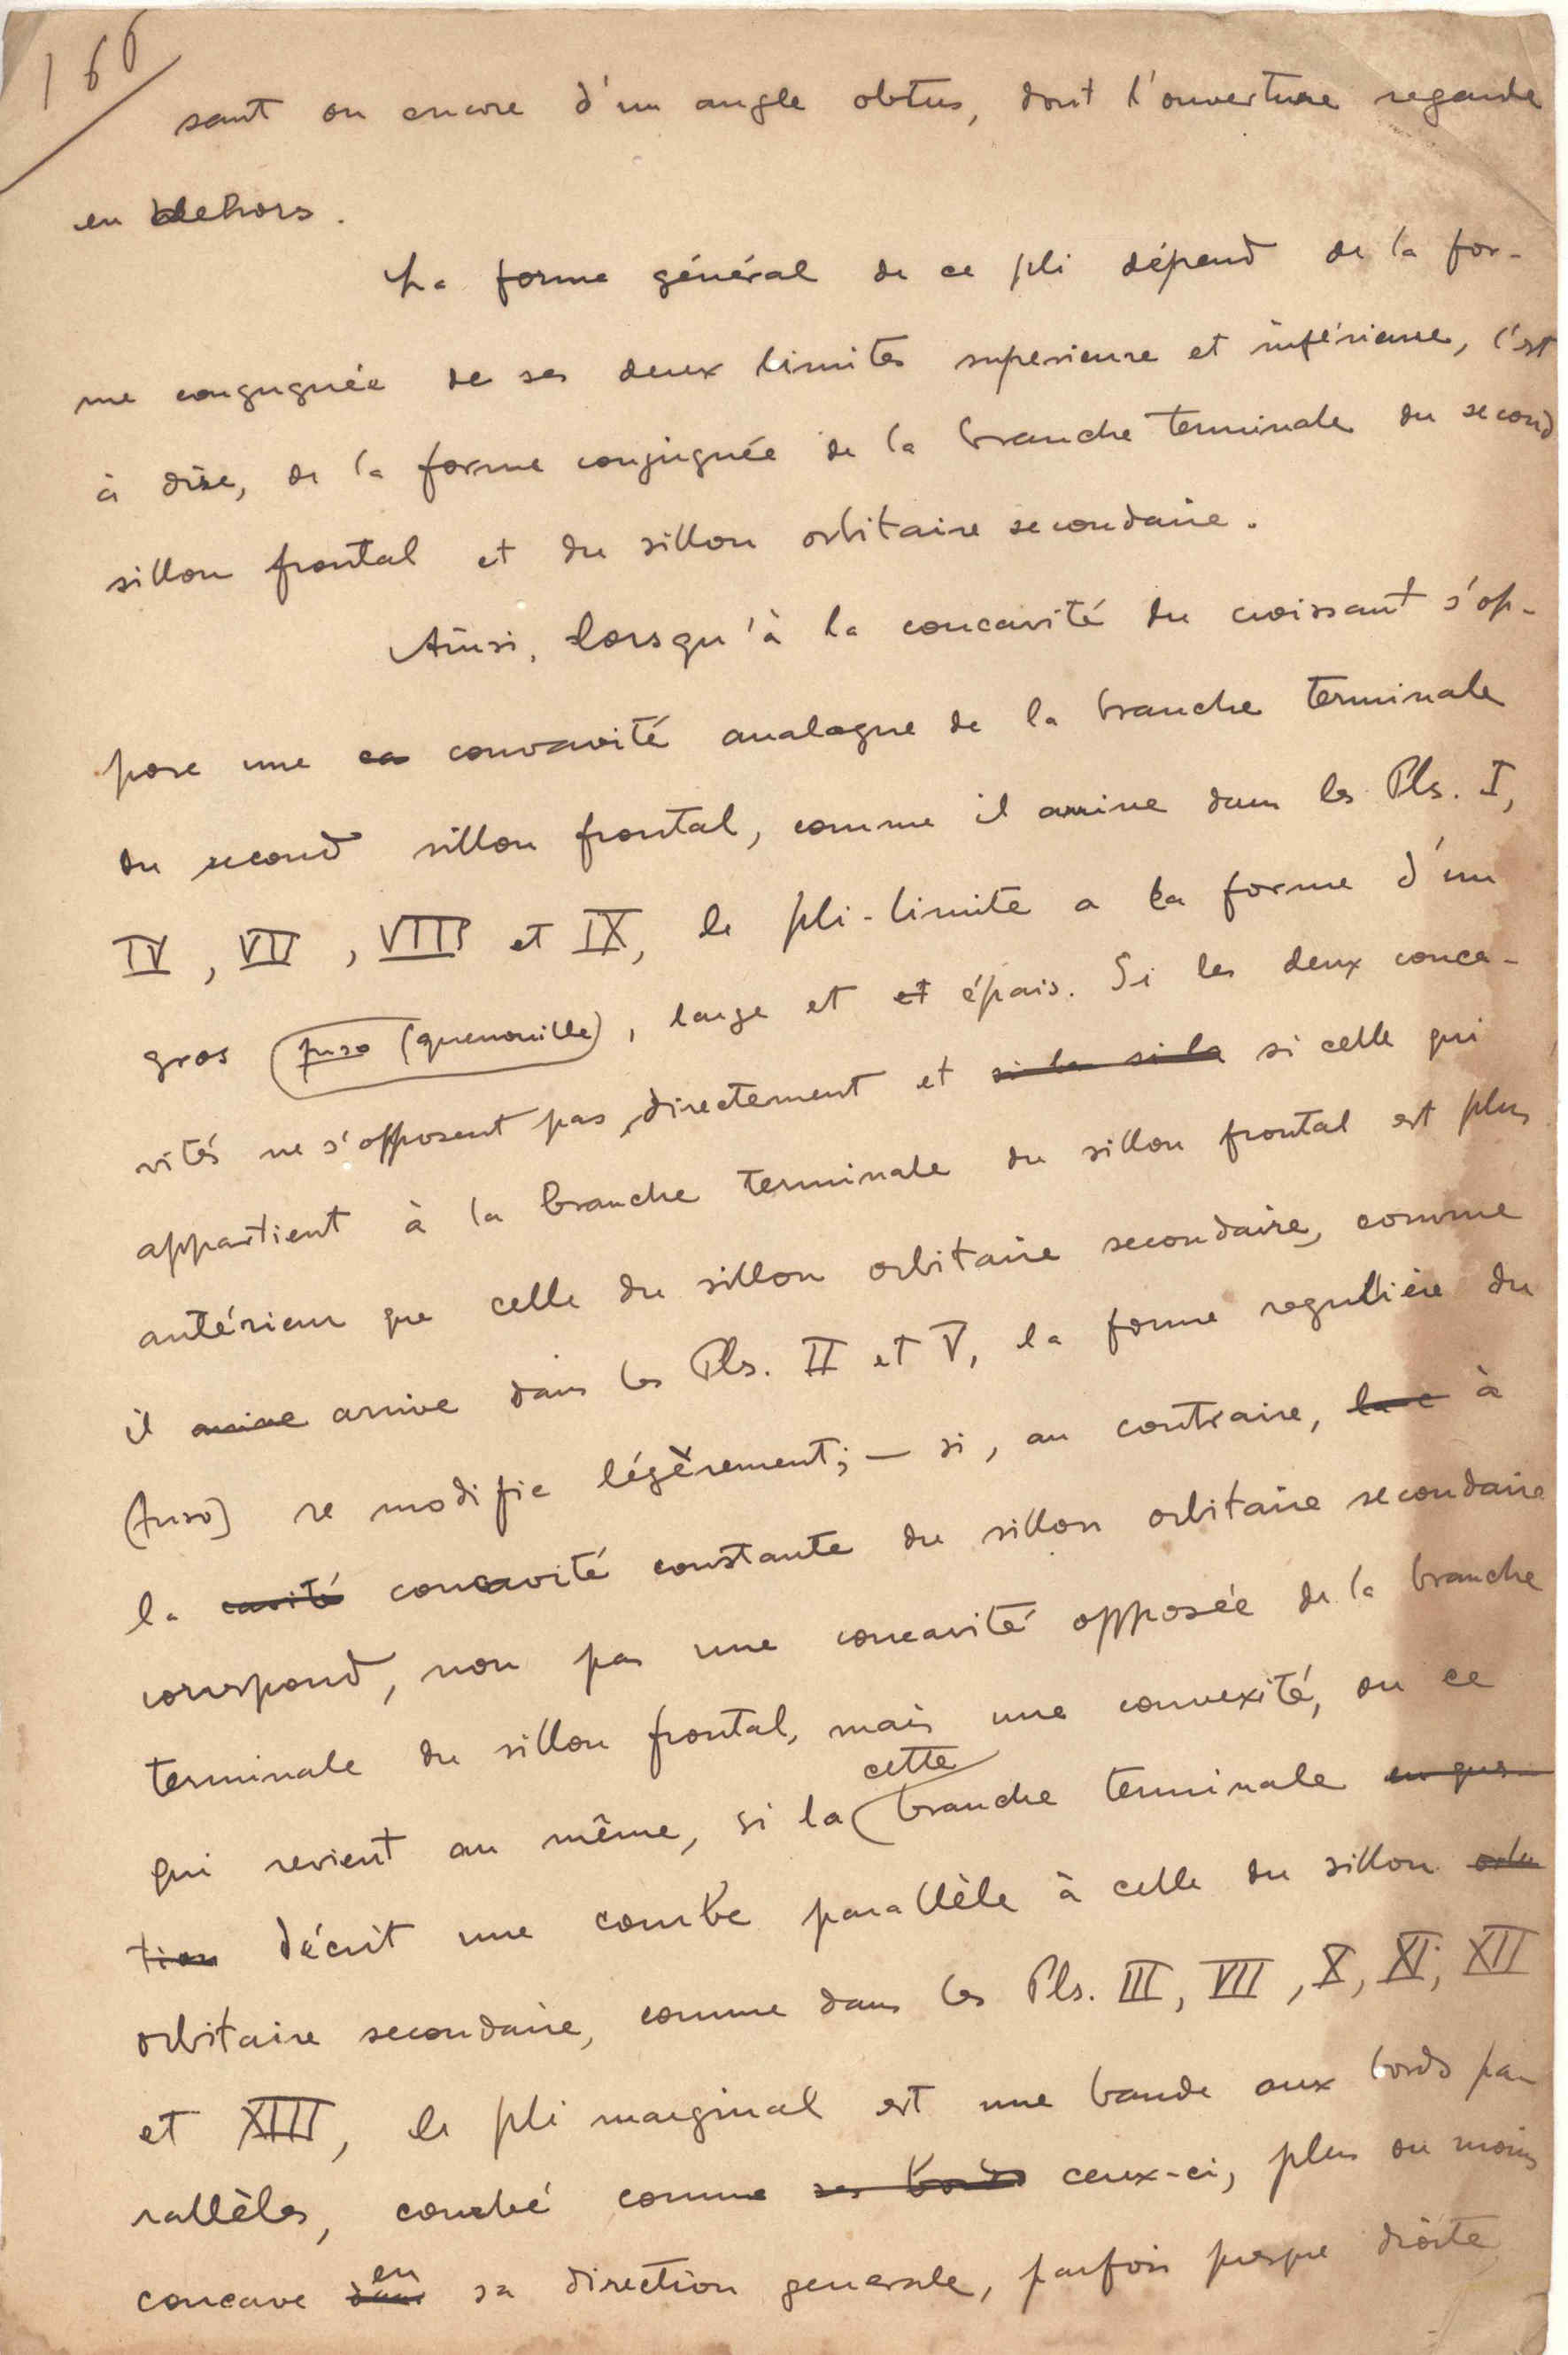 166
sant ou encore d'un angle obtus, dont l'ouverture regarde
en dehors.
La forme général de ce pli dépend de la for-
me conguguée de ses deux limites superieure et inférieure, c'est
à dire, de la forme conjuguée de la branche terminale du second
sillon frontal et du sillon orbitaire secondaire.
Ainsi, lorsqu'à la concavité du croissant s'op-
pose une ca concavité analogue de la branche terminale
du second sillon frontal, comme il arrive dans les Pls. I,
IV, VII, VIII et IX, le pli-limite a la forme d'un
gros fuso (quenouille), large et et épais. Si les deux conca-
vités ne s'opposent pas directement et si la si la si celle qui
appartient à la branche terminale du sillon frontal est plus
antérieur que celle du sillon orbitaire secondaire, comme
il arrive arrive dans les Pls. II et V, la forme regulière du
(fuso) se modifie légèrement; — si, au contraire, la c à
la cavité concavité constante du sillon orbitaire secondaire
correspond, non pas une concavité opposée de la branche
terminale du sillon frontal, mais une convexité, ou ce
cette
qui revient au même, si la branche terminale en ques-
tion décrit une courbe parallèle à celle du sillon orbi
orbitaire secondaire, comme dans les Pls. III, VII, X, XI, XII
et XIII, le pli marginal est une bande aux bords pa-
rallèles, courbé comme ses bords ceux-ci, plus ou moins
en
concave dans sa direction generale, parfois presque droite